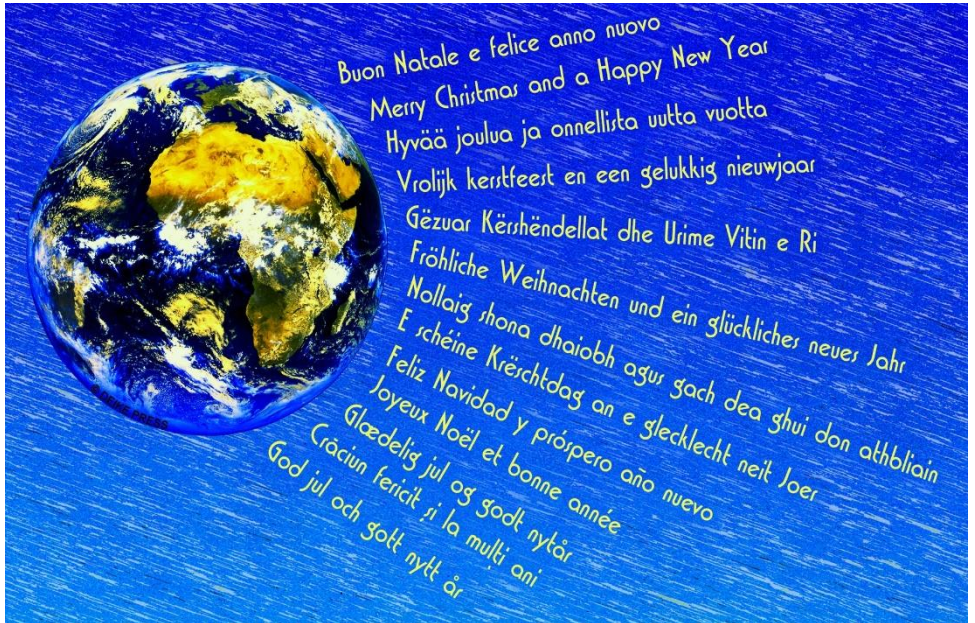 Buon Natale e felice anno nuovo
Merry Christmas and a Happy New Year
Hyvää joulua ja onnellista uutta vuotta
Vrolijk kerstfeest en een gelukkig nieuwjaar
Gëzuar Kërshëndellat dhe Urime Vitin e Ri
Fröhliche Weihnachten und ein glückliches neues Jahr
Nollaig shona dhaoibh agus gach dea ghui don athbliain
E schéine Krëschtdag an e glecklecht neit Joer
Feliz Navidad y próspero año nuevo
Joyeux Noël et bonne année
Glædelig jul og godt nytår
Crăciun fericit și la mulți ani
God jul och gott nytt år
PRESS